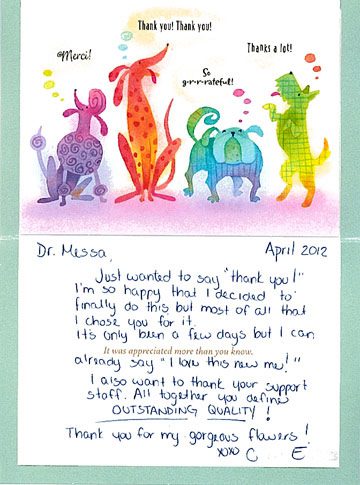 Thank you! Thank you!
Merci!
So
g-r-r-rateful!
Thanks a lot!
Dr. Messa,
April 2012
Just wanted to say "thank you!"
I'm so happy that I decided to
finally do this but most of all that
I chose you for it.
It's only been a few days but I can
It was appreciated more than you know.
already say "I love this new me!"
I also want to thank your support
staff. All together you define
OUTSTANDING QUALITY!
Thank you for my gorgeous flowers!
xoxo C E